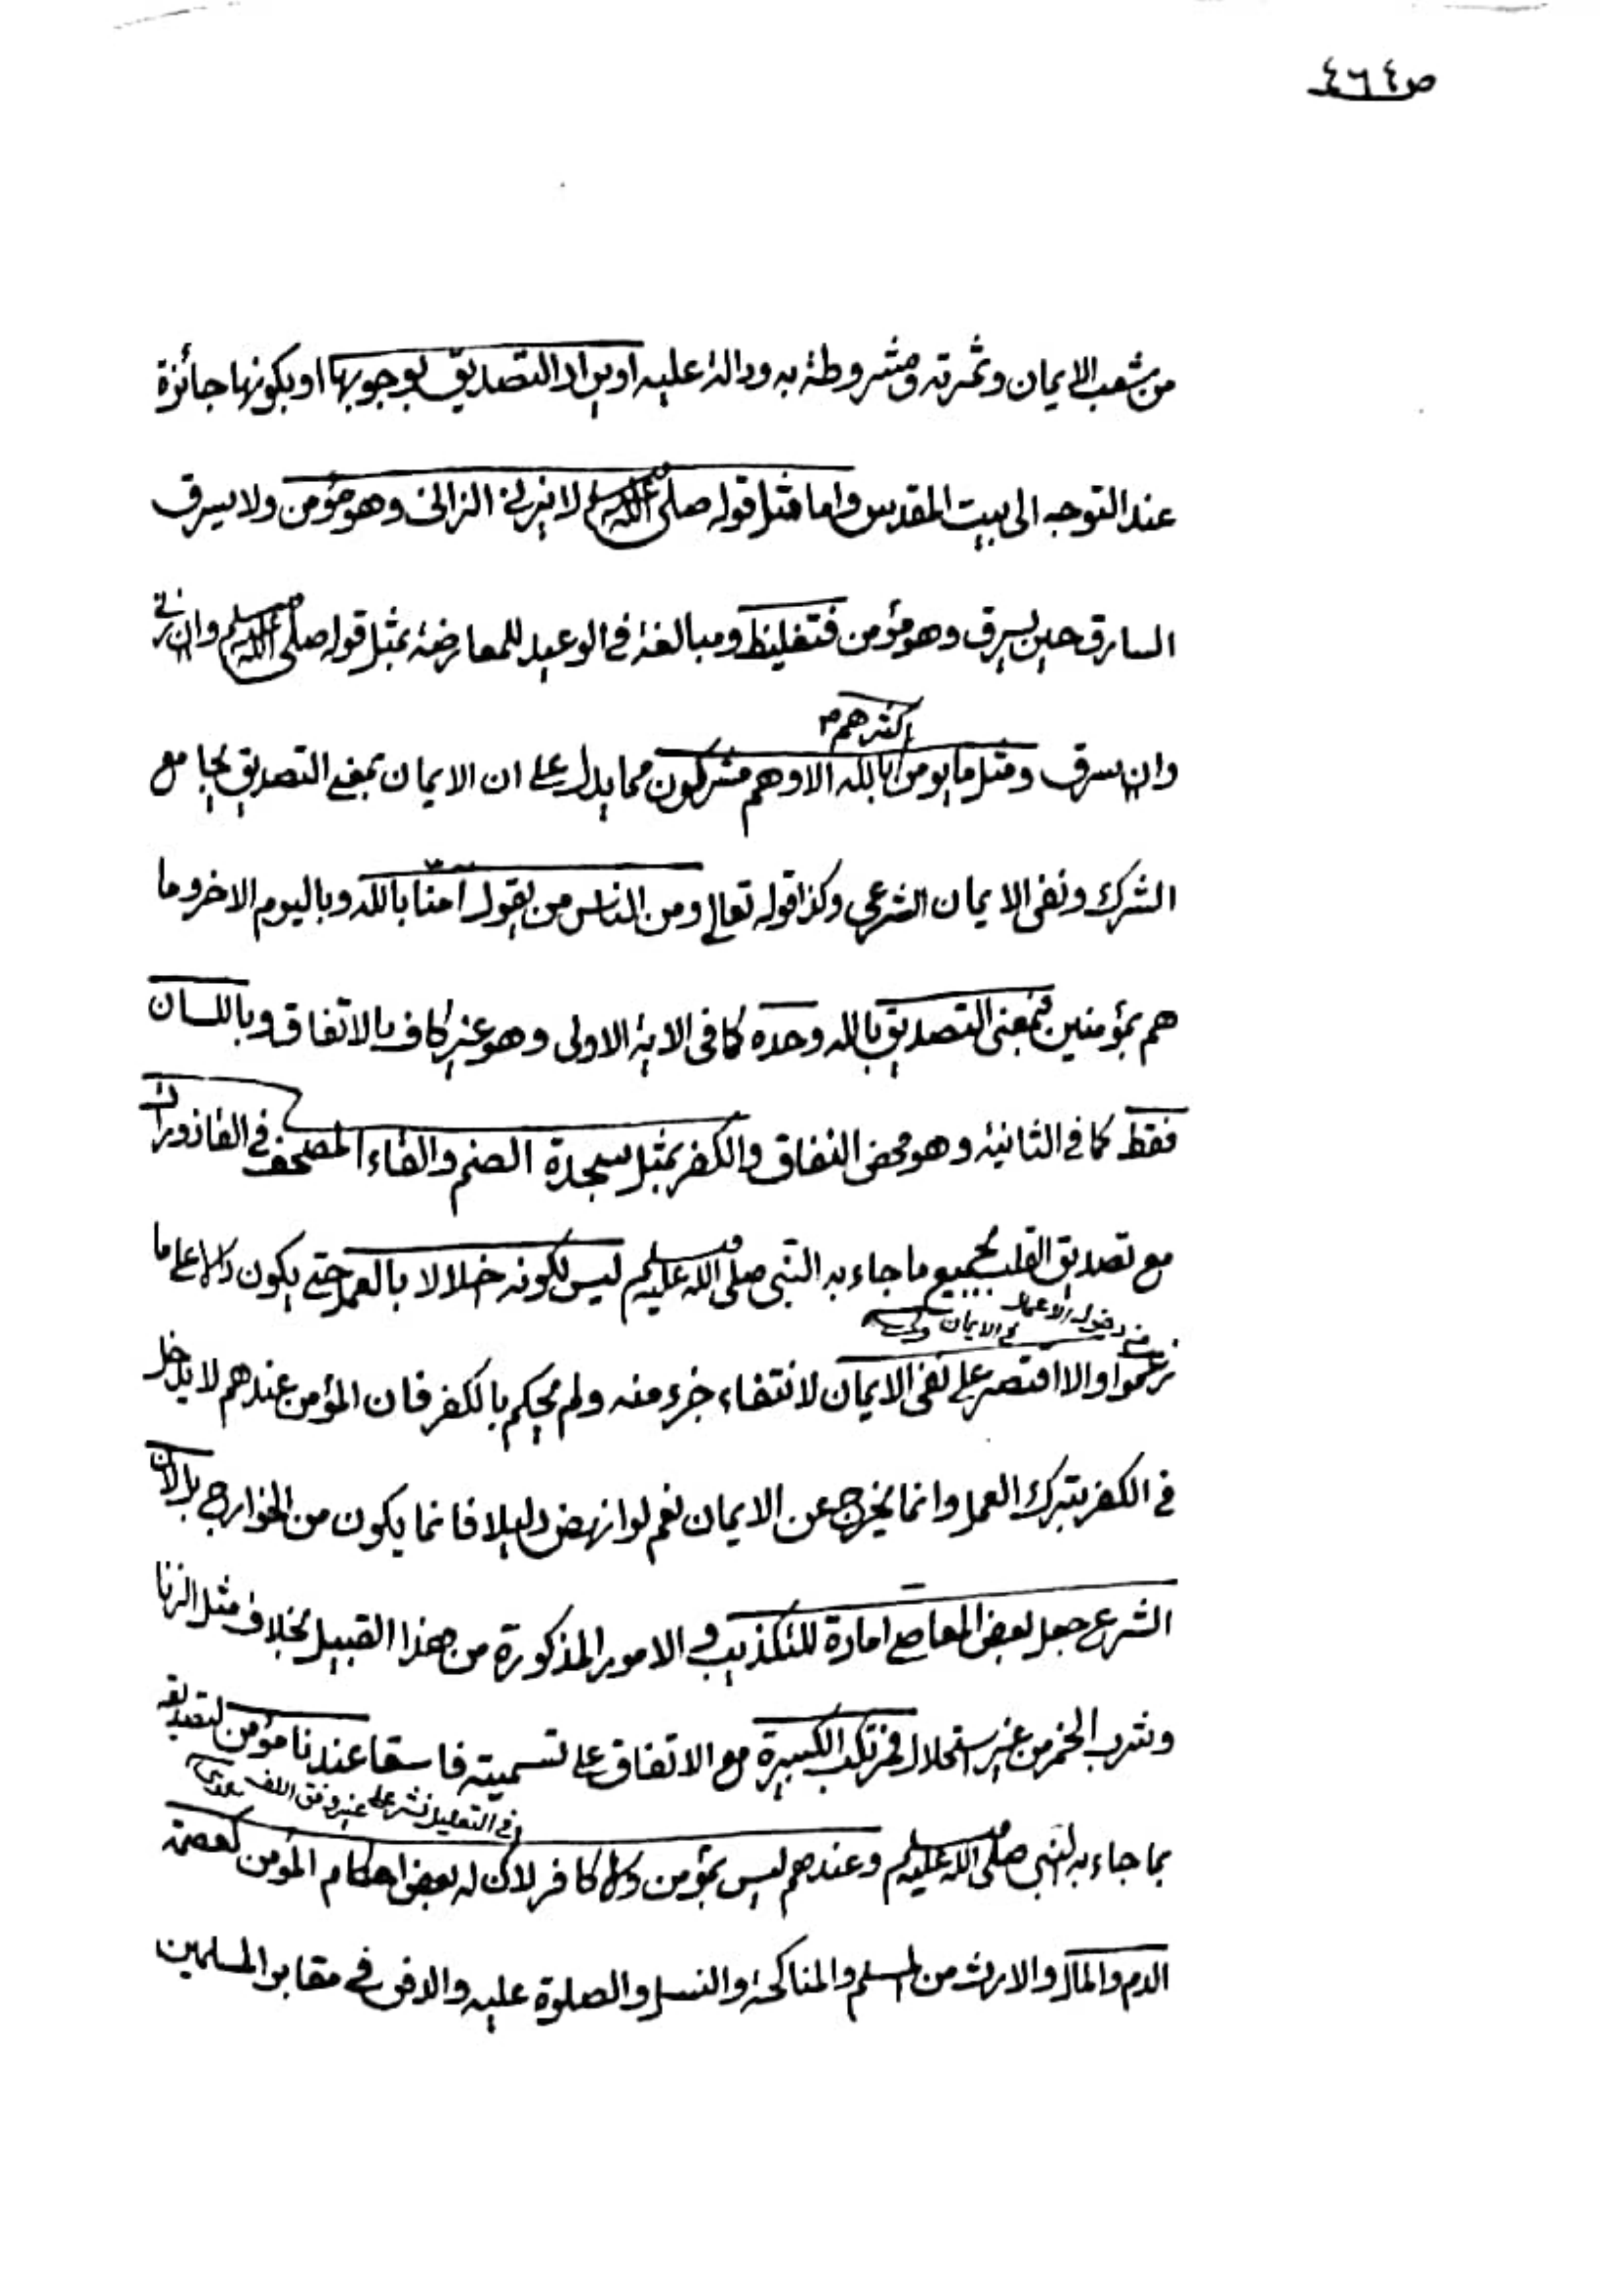 ص٤٦٤
من شعب الايمان وثمرته ومشروطة به ودالة عليه او يراد التصديق بوجوبها او بكونها جائزة
عند التوجه الى بيت المقدس واما مثل قوله صلى الله عليه وسلم لا يزنى الزانى وهو مؤمن ولا يسرق
السارق حين يسرق وهو مؤمن فتغليظ ومبالغة فى الوعيد للمعارضة بمثل قوله صلى الله عليه وسلم وان زنى
وان سرق ومثل ما يومن بالله الا وهم مشركون مما يدل على ان الايمان بمعنى التصديق يجامع
اكثرهم
الشرك ونفى الايمان الشرعى وكذا قوله تعالى ومن الناس من يقول امنا بالله وباليوم الاخر وما
هم بمؤمنين فبمعنى التصديق بالله وحده كما فى الاية الاولى وهو غير كاف بالاتفاق وباللسان
فقط كما فى الثانية وهو محض النفاق والكفر بمثل سجدة الصنم والقاء المصحف فى القاذورات
مع تصديق القلب بجميع ما جاء به النبى صلى الله عليه وسلم ليس لكونه خلالا بالعمل حتى يكون دالا على ما
من دخول الاعمال فى الايمان
زعموا والا اقتصر على نفى الايمان لانتفاء جزء منه ولم يحكم بالكفر فان المؤمن عندهم لا يدخل
فى الكفر بترك العمل وانما يخرج عن الايمان نعم لو انهض دليلا فانما يكون من الخوارج بل لان
الشرع جعل بعض المعاصى امارة للتكذيب والامور المذكورة من هذا القبيل بخلاف مثل الزنا
وشرب الخمر من غير استحلال فمرتكب الكبيرة مع الاتفاق على تسميته فاسقا عندنا مؤمن لتصديقه
فى التعليل نشر على غير وفق اللف
بما جاء به النبى صلى الله عليه وسلم وعندهم ليس بمؤمن ولا كافر لان له بعض احكام المؤمن كعصمة
الدم والمال والارث من المسلم والمناكحة والنسل والصلوة عليه والدفن فى مقابر المسلمين